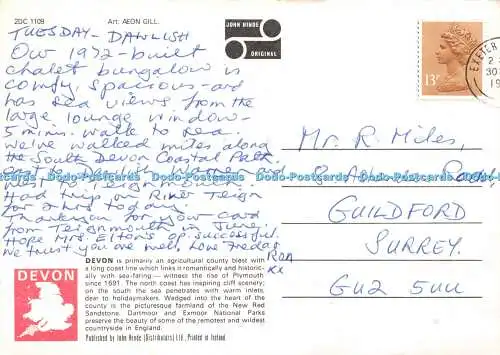 2DC 1109
Art: AEON GILL.
JOHN HINDE
ORIGINAL
13P
EXETER
TUESDAY - DAWLISH
Our 1972-built
chalet bungalow is
comfy, spacious and
has sea views from the
large lounge window -
5 mins. walk to sea.
We've walked miles along
the South Devon Coastal Path.
West to Teignmouth.
Had trip on River Teign
for 2 hrs today.
Thankyou for your card
from Teignmouth in June.
Hope Mrs. Elton's op. successful.
We trust you are well, Love Freda
ROA
xx
Mr. R. Miles,
GUILDFORD
SURREY.
GU2 5UU
Dodo-Postcards Dodo-Postcards Dodo-Postcards Dodo-Postcards
DEVON
DEVON is primarily an agricultural county blest with
a long coast line which links it romantically and historic-
ally with sea-faring — witness the rise of Plymouth
since 1691. The north coast has inspiring cliff scenery;
on the south the sea penetrates with warm inlets,
dear to holidaymakers. Wedged into the heart of the
county is the picturesque farmland of the New Red
Sandstone. Dartmoor and Exmoor National Parks
preserve the beauty of some of the remotest and wildest
countryside in England.
Published by John Hinde (Distributors) Ltd., Printed in Ireland